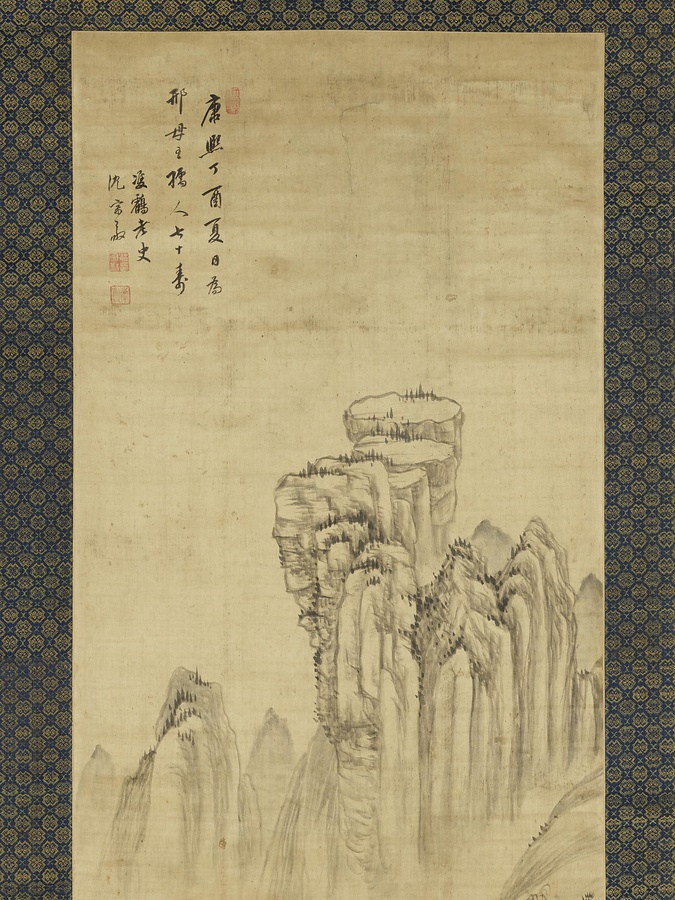 康熙丁酉夏日為
邢母王孺人七十壽
雙鶴老史
沈宗敬